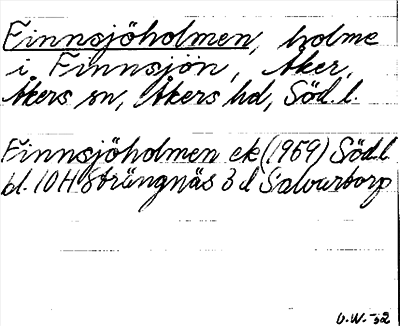 Finnsjöholmen, holme
i Finnsjön, Åker,
Åkers sn, Åkers hd, Söd. l.
Finnsjöholmen ek (1959) Söd.l
bl. 10H Strängnäs 3 d Salvartorp
U.W.-92